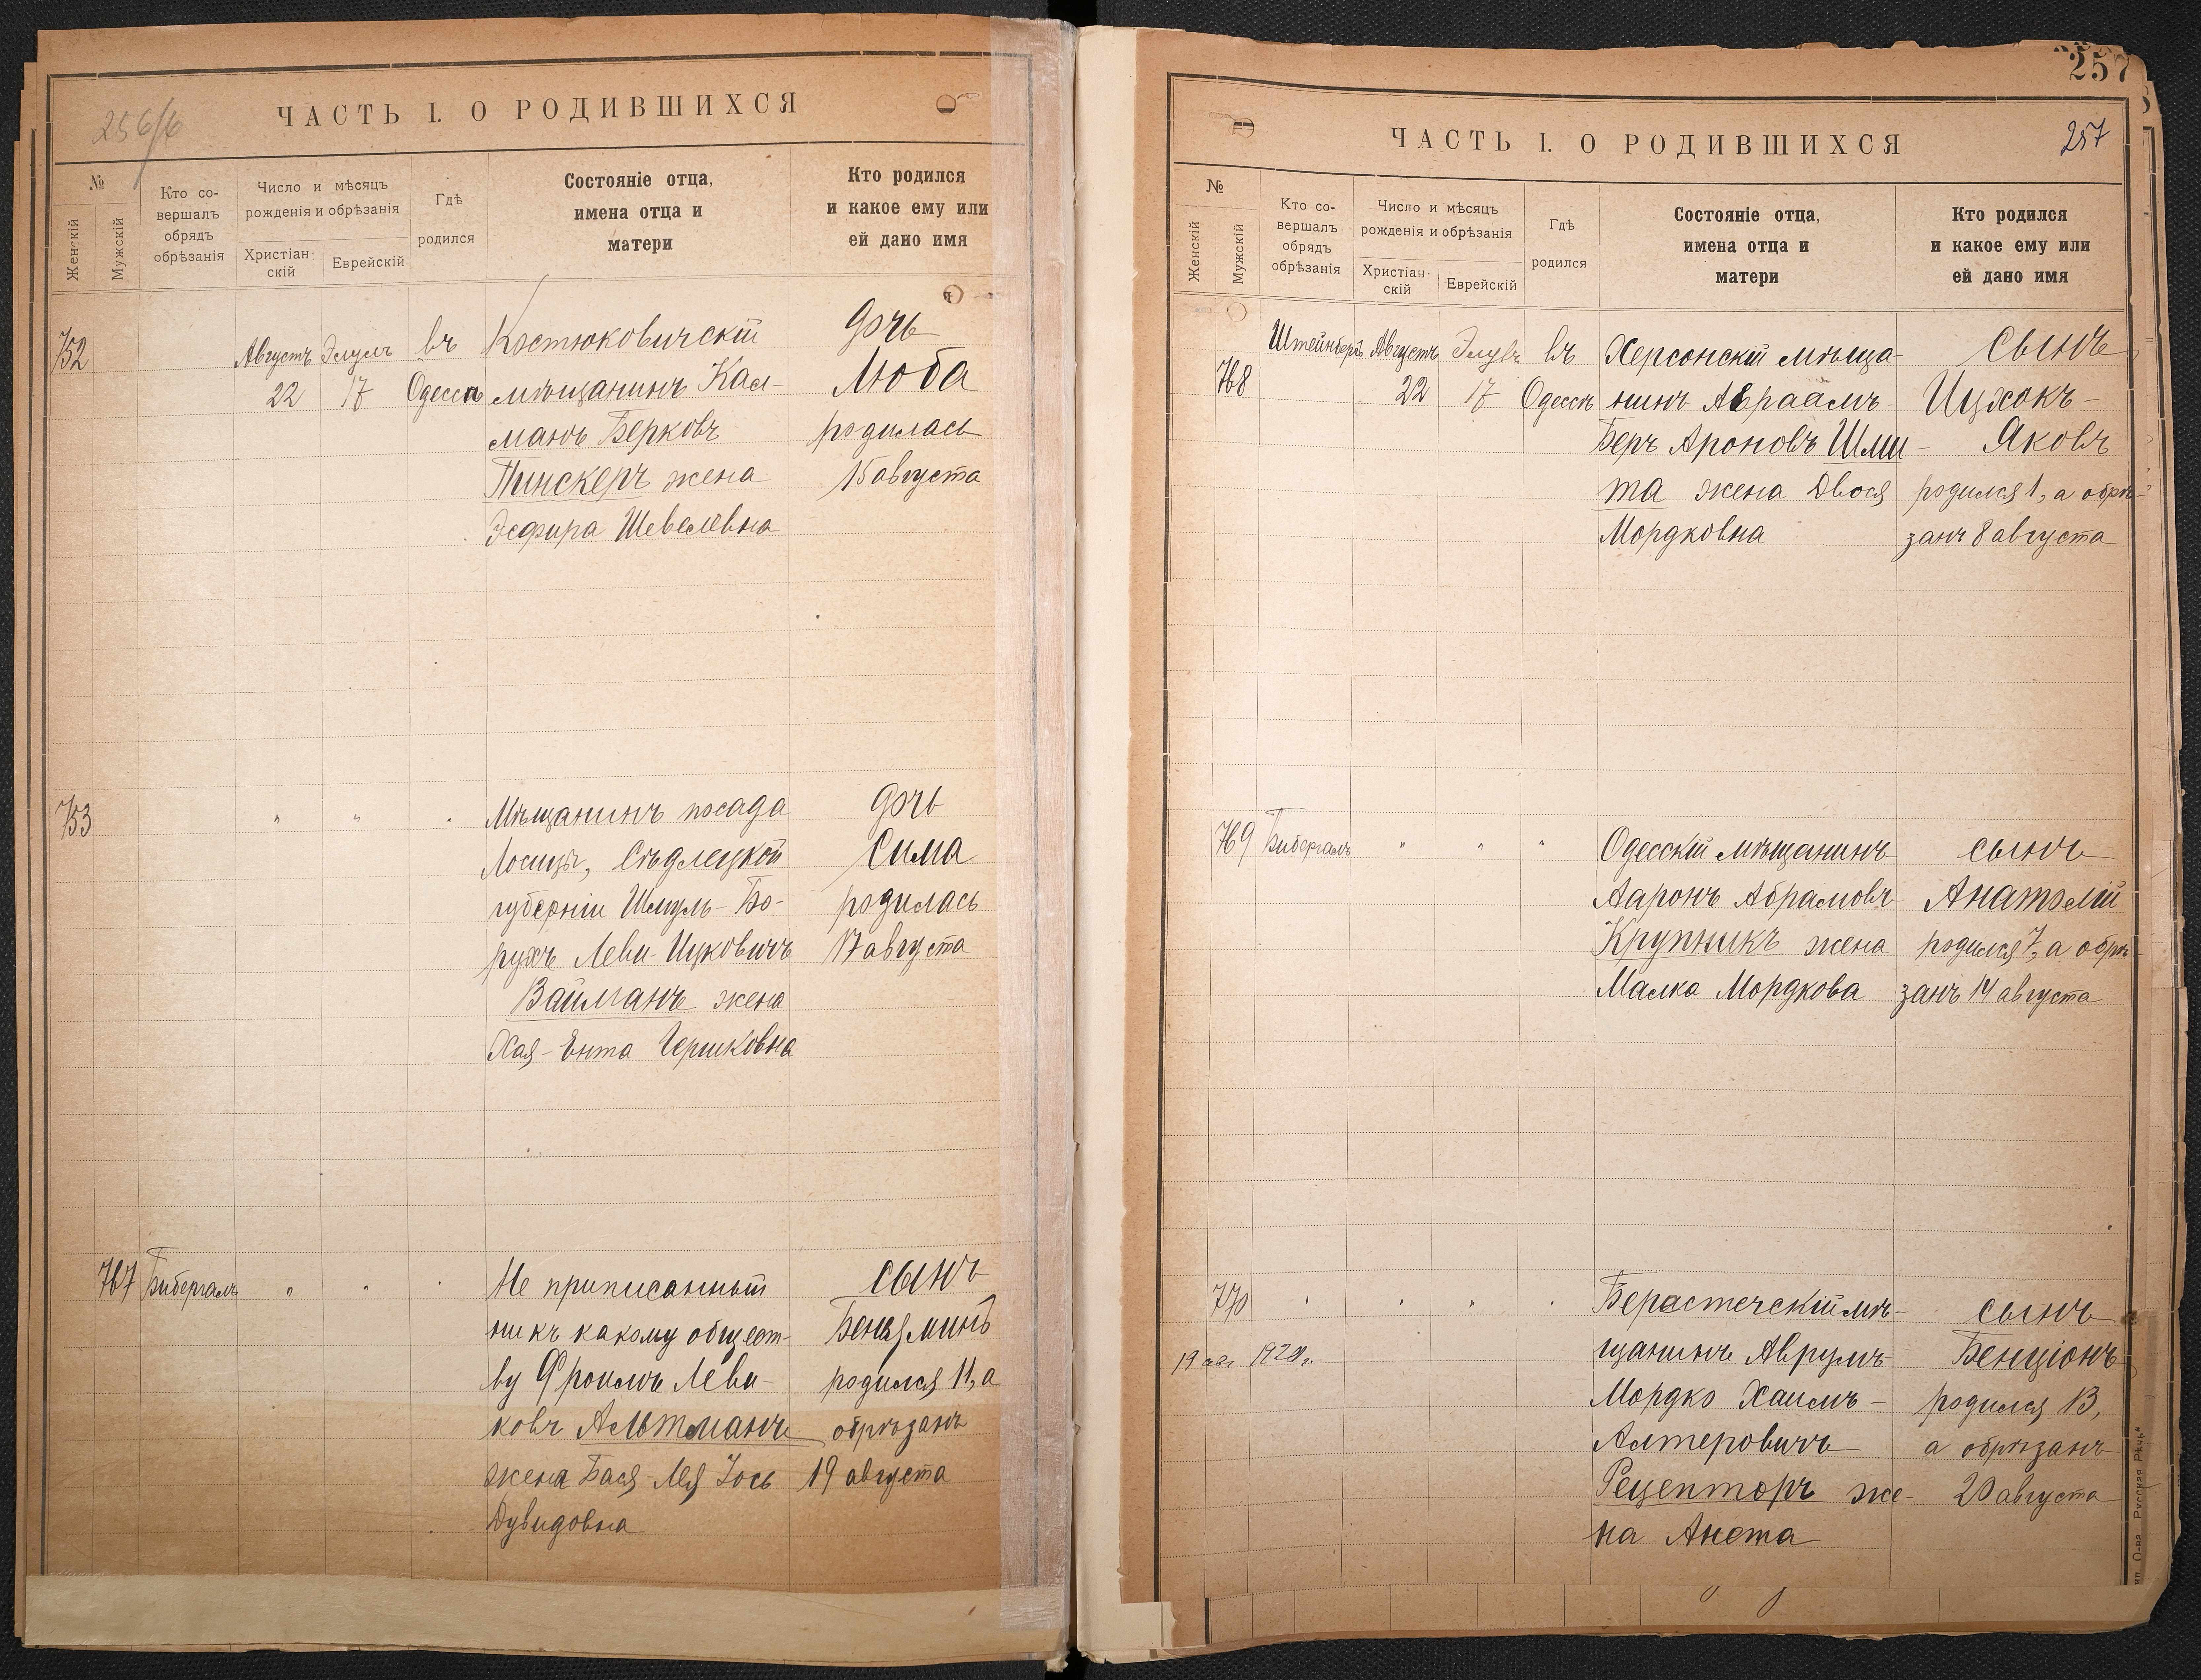 256/б
ЧАСТЬ I. О РОДИВШИХСЯ
№
Женскій
Мужскій
Кто со-
вершалъ
обрядъ
обрѣзанія
Число и мѣсяцъ
рожденія и обрѣзанія
Христіан-
скій
Еврейскій
Гдѣ
родился
Состояніе отца,
имена отца и
матери
Кто родился
и какое ему или
ей дано имя
752
Августъ
22
Элулъ
17
въ
Одессѣ
Костюковичскій
мѣщанинъ Кал-
манъ Берковъ
Пинскеръ жена
Эсфира Шевелевна
дочь
Люба
родилась
15 августа
753
" " "
Мѣщанинъ посада
Лосицы, Сѣдлецкой
губерніи Шмуль-Бо-
рухъ Леви-Ицковичъ
Вайманъ жена
Хая-Ента Гершковна
дочь
Сима
родилась
17 августа
767
Бибергалъ
" " "
Не приписанный
ни къ какому общест-
ву Фроимъ Леви-
ковъ Альтманъ
жена Бася-Лея Іось
Дувидовна
сынъ
Беньяминъ
родился 11, а
обрѣзанъ
19 августа
257
257
ЧАСТЬ I. О РОДИВШИХСЯ
№
Женскій
Мужскій
Кто со-
вершалъ
обрядъ
обрѣзанія
Число и мѣсяцъ
рожденія и обрѣзанія
Христіан-
скій
Еврейскій
Гдѣ
родился
Состояніе отца,
имена отца и
матери
Кто родился
и какое ему или
ей дано имя
768
Штейнбергъ
Августъ
22
Элулъ
17
въ
Одессѣ
Херсонскій мѣща-
нинъ Авраамъ-
Беръ Ароновъ Шми-
та жена Двося
Мордковна
сынъ
Ицхокъ-
Яковъ
родился 1, а обрѣ-
занъ 8 августа
769
Бибергалъ
" " "
Одесскій мѣщанинъ
Ааронъ Абрамовъ
Крупникъ жена
Малка Мордкова
сынъ
Анатолій
родился 7, а обрѣ-
занъ 14 августа
770
" " " "
Берестечскій мѣ-
щанинъ Аврумъ-
Мордко Хаимъ-
Алтеровичъ
Рецепторъ же-
на Анета
сынъ
Бенціонъ
родился 13,
а обрѣзанъ
20 августа
О-ва „Русская Рѣчь“